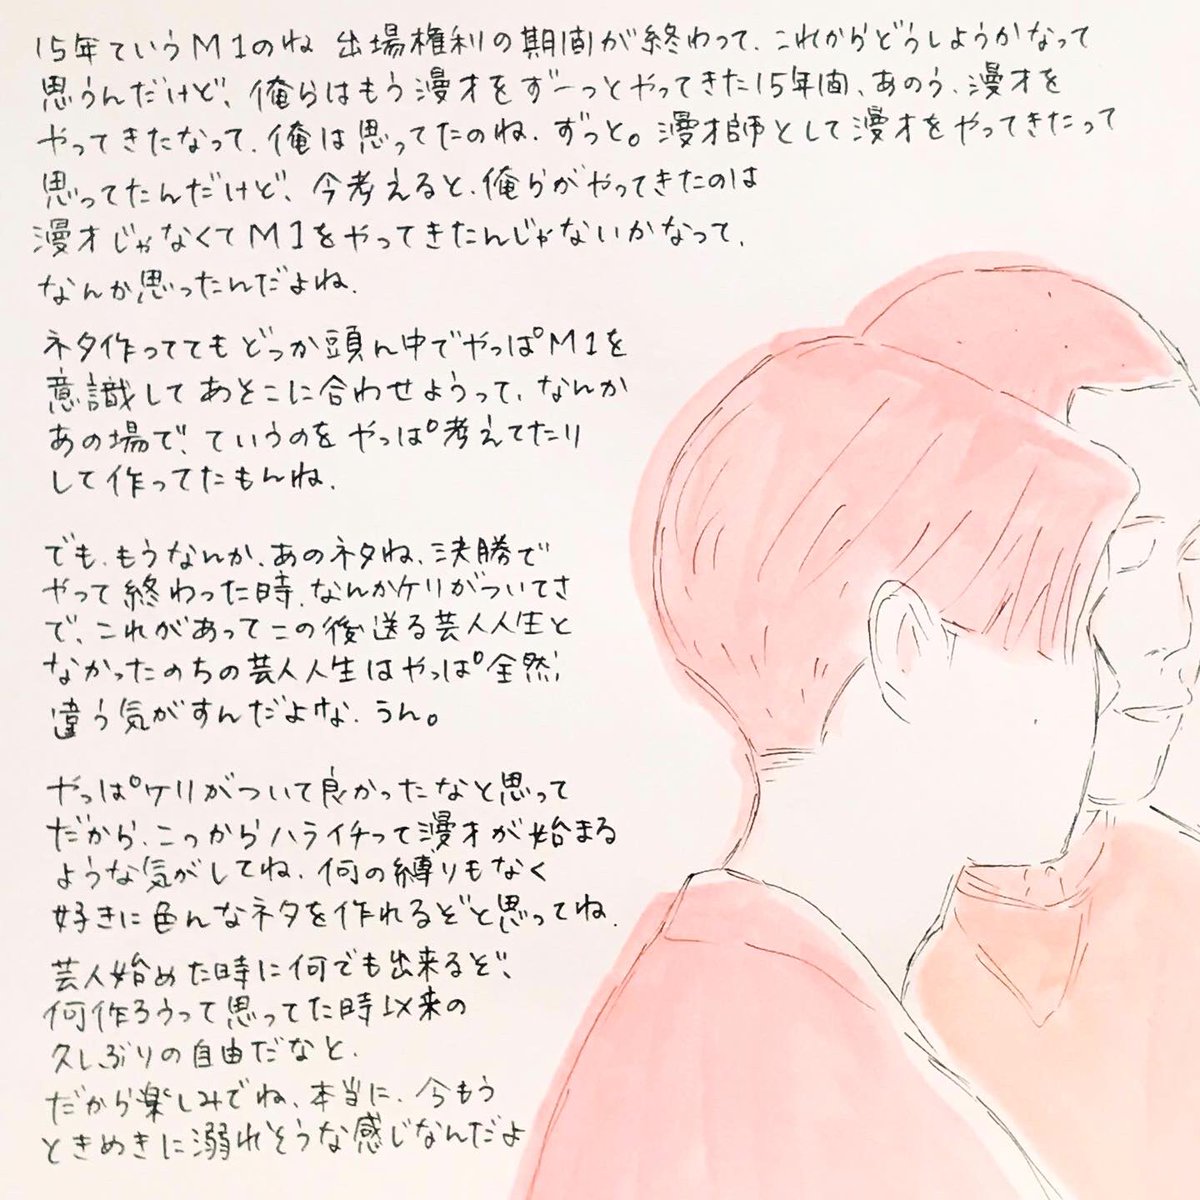 15年ていうM1のね 出場権利の期間が終わって、これからどうしようかなって
思うんだけど、俺らはもう漫才をずーっとやってきた15年間、あのう、漫才を
やってきたなって、俺は思ってたのね、ずっと。漫才師として漫才をやってきたって
思ってたんだけど、今考えると、俺らがやってきたのは
漫才じゃなくてM1をやってきたんじゃないかなって、
なんか思ったんだよね、
ネタ作っててもどっか頭ん中でやっぱM1を
意識してあそこに合わせようって、なんか
あの場で、ていうのをやっぱ考えてたり
して作ってたもんね、
でも、もうなんか、あのネタね、決勝で
やって終わった時、なんかケリがついてさ
で、これがあってこの後送る芸人人生と
なかったのちの芸人人生はやっぱ全然
違う気がすんだよな、うん。
やっぱケリがついて良かったなと思って
だから、こっからハライチって漫才が始まる
ような気がしてね、何の縛りもなく
好きに色んなネタを作れるぞと思ってね、
芸人始めた時に何でも出来るぞ、
何作ろうって思ってた時以来の
久しぶりの自由だなと、
だから楽しみでね、本当に、今もう
ときめきに溺れそうな感じなんだよ